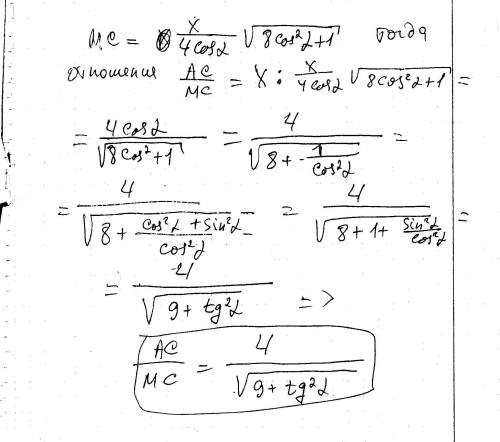 MC = x/(4cosα) √(8cos²α+1) тогда
отношения AC/MC = x : x/(4cosα) √(8cos²α+1) =
= 4cosα/√(8cos²+1) = 4/√(8+ 1/cos²α) =
= 4/√(8+ (cos²α+sin²α)/cos²α) = 4/√(8+1+ sin²α/cos²α) =
= 4/√(9+tg²α) =>
AC/MC = 4/√(9+tg²α)